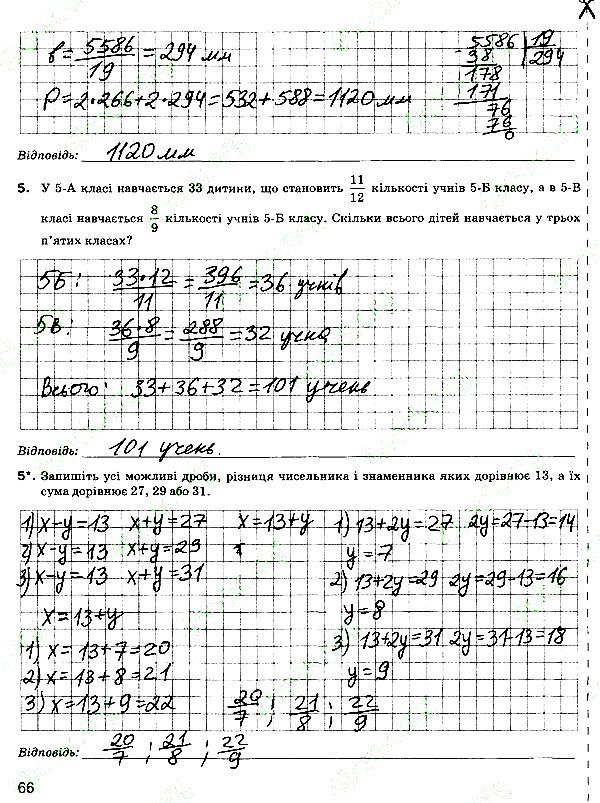 в = 5586/19 = 294 мм
5586 | 19
38 | 294
178
171
76
76
0
P = 2·266 + 2·294 = 532 + 588 = 1120 мм
Відповідь: 1120 мм
5. У 5-А класі навчається 33 дитини, що становить 11/12 кількості учнів 5-Б класу, а в 5-В
класі навчається 8/9 кількості учнів 5-Б класу. Скільки всього дітей навчається у трьох
п'ятих класах?
5Б: 33·12/11 = 396/11 = 36 учнів
5В: 36·8/9 = 288/9 = 32 учна
Всього: 33 + 36 + 32 = 101 учень
Відповідь: 101 учень.
5*. Запишіть усі можливі дроби, різниця чисельника і знаменника яких дорівнює 13, а їх
сума дорівнює 27, 29 або 31.
1) x − y = 13 x + y = 27 x = 13 + y
2) x − y = 13 x + y = 29
3) x − y = 13 x + y = 31
x = 13 + y
1) x = 13 + 7 = 20
2) x = 13 + 8 = 21
3) x = 13 + 9 = 22
1) 13 + 2y = 27 2y = 27 − 13 = 14
y = 7
2) 13 + 2y = 29 2y = 29 − 13 = 16
y = 8
3) 13 + 2y = 31 2y = 31 − 13 = 18
y = 9
20/7 ; 21/8 ; 22/9
Відповідь: 20/7 ; 21/8 ; 22/9
66